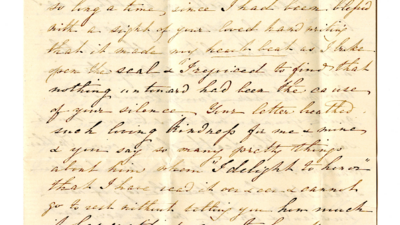 so long a time, since I had been blessed
with a sight of your loved hand writing
that it made my heart beat as I broke
open the seal & I rejoiced to find that
nothing untoward had been the cause
of your silence. Your letter breathed
such loving kindness for me & mine
& you say so many pretty things
about him whom "I delight to honor"
that I have read it over & over & cannot
go to rest without telling you how much